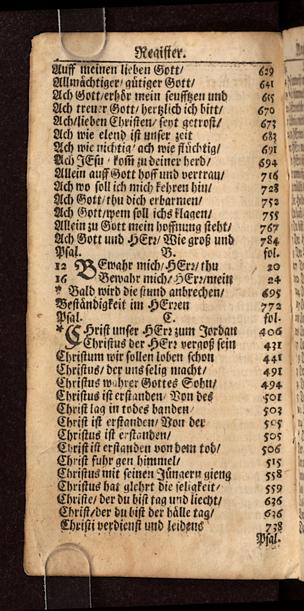 Register.
Auff meinen lieben Gott/ 629
Allmächtiger/ gütiger Gott/ 641
Ach Gott/ erhör mein seufftzen und 615
Ach treuer Gott/ hertzlich ich bitt/ 670
Ach/ lieben Christen/ seyt getrost/ 673
Ach wie elend ist unser zeit 683
Ach wie nichtig/ ach wie flüchtig/ 691
Ach JEsu/ kom̃ zu deiner herd/ 694
Allein auff Gott hoff und vertrau/ 716
Ach wo soll ich mich kehren hin/ 728
Ach Gott/ thu dich erbarmen/ 752
Ach Gott/ wem soll ichs klagen/ 755
Allein zu Gott mein hoffnung steht/ 767
Ach Gott und HErr/ Wie groß und 784
Psal. B. fol.
12 BEwahr mich/ HErr/ thu 20
16 Bewahr mich/ HErr/ mein 24
* Bald wird die stund anbrechen/ 695
Beständigkeit im HErren 772
Psal. C. fol.
* CHrist unser HErr zum Jordan 406
Christus der HErr vergoß sein 431
Christum wir sollen loben schon 441
Christus/ der uns selig macht/ 491
Christus wahrer Gottes Sohn/ 494
Christus ist erstanden/ Von des 501
Christ lag in todes banden/ 503
Christ ist erstanden/ Von der 505
Christus ist erstanden/ 505
Christ ist erstanden von dem tod/ 506
Christ fuhr gen himmel/ 515
Christus mit seinen Jüngern gieng 558
Christus hat glehrt die seligkeit/ 559
Christe/ der du bist tag und liecht/ 636
Christ/ der du bist der hälle tag/ 636
Christi verdienst und leidens 738
Psal.